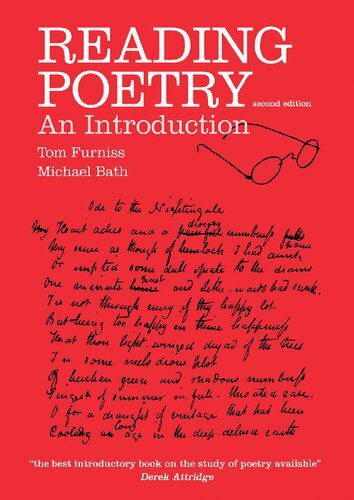 READING
POETRY
second edition
An Introduction
Tom Furniss
Michael Bath
Ode to the Nightingale
drowsy
My Heart aches and a painful numbness falls
My sense as though of hemlock I had drunk
Or emptied some dull opiate to the drains
past
One minute and Lethe-wards had sunk.
Tis not through envy of thy happy lot
But being too happy in thine happiness
That thou light-winged dryad of the trees
In some melodious plot
Of beechen green and shadows numberless
Singest of summer in full-throated ease.
O for a draught of vintage that has been
Cooling an age in the deep-delved earth
"the best introductory book on the study of poetry available"
Derek Attridge